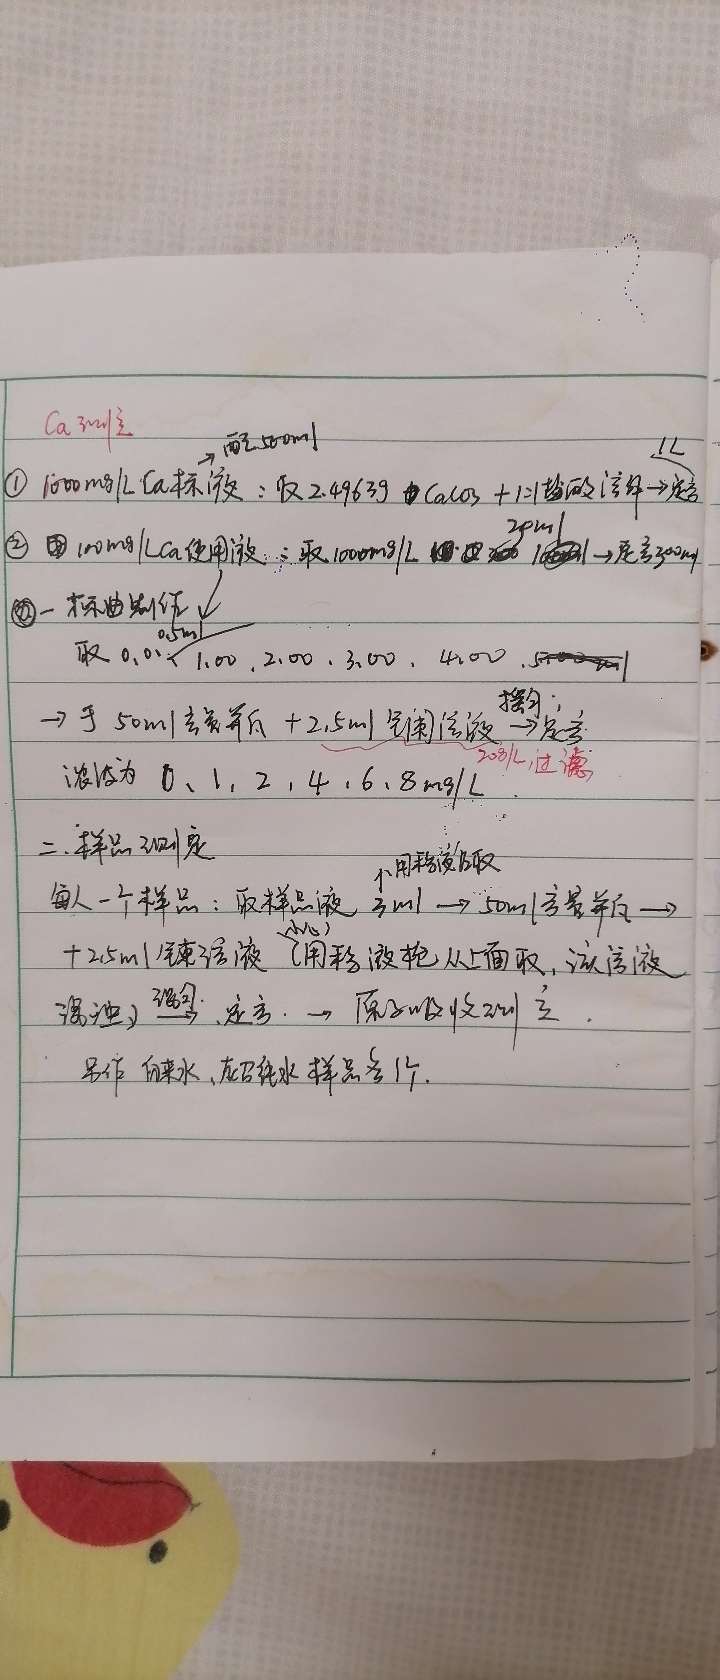 Ca测定
→配500ml
1L
① 1000mg/L Ca标液：取2.4963g CaCO3 +1:1盐酸溶解→定容
20ml
② 100mg/L Ca使用液：取1000mg/L →定容200ml
一 标曲制作
0.5ml
取 0.0、1.00、2.00、3.00、4.00、
摇匀；
→于50ml容量瓶 +2.5ml 镧溶液 →定容
20g/L，过滤
浓度为 0、1、2、4、6、8mg/L
二、样品测定
用移液枪取
每人一个样品：取样品液 3ml →50ml容量瓶→
小心
+2.5ml 溶液 (用移液枪从上面取，该溶液
混匀
浑浊) → 定容 → 原子吸收测定.
另作 自来水、 纯水 样品各1个.